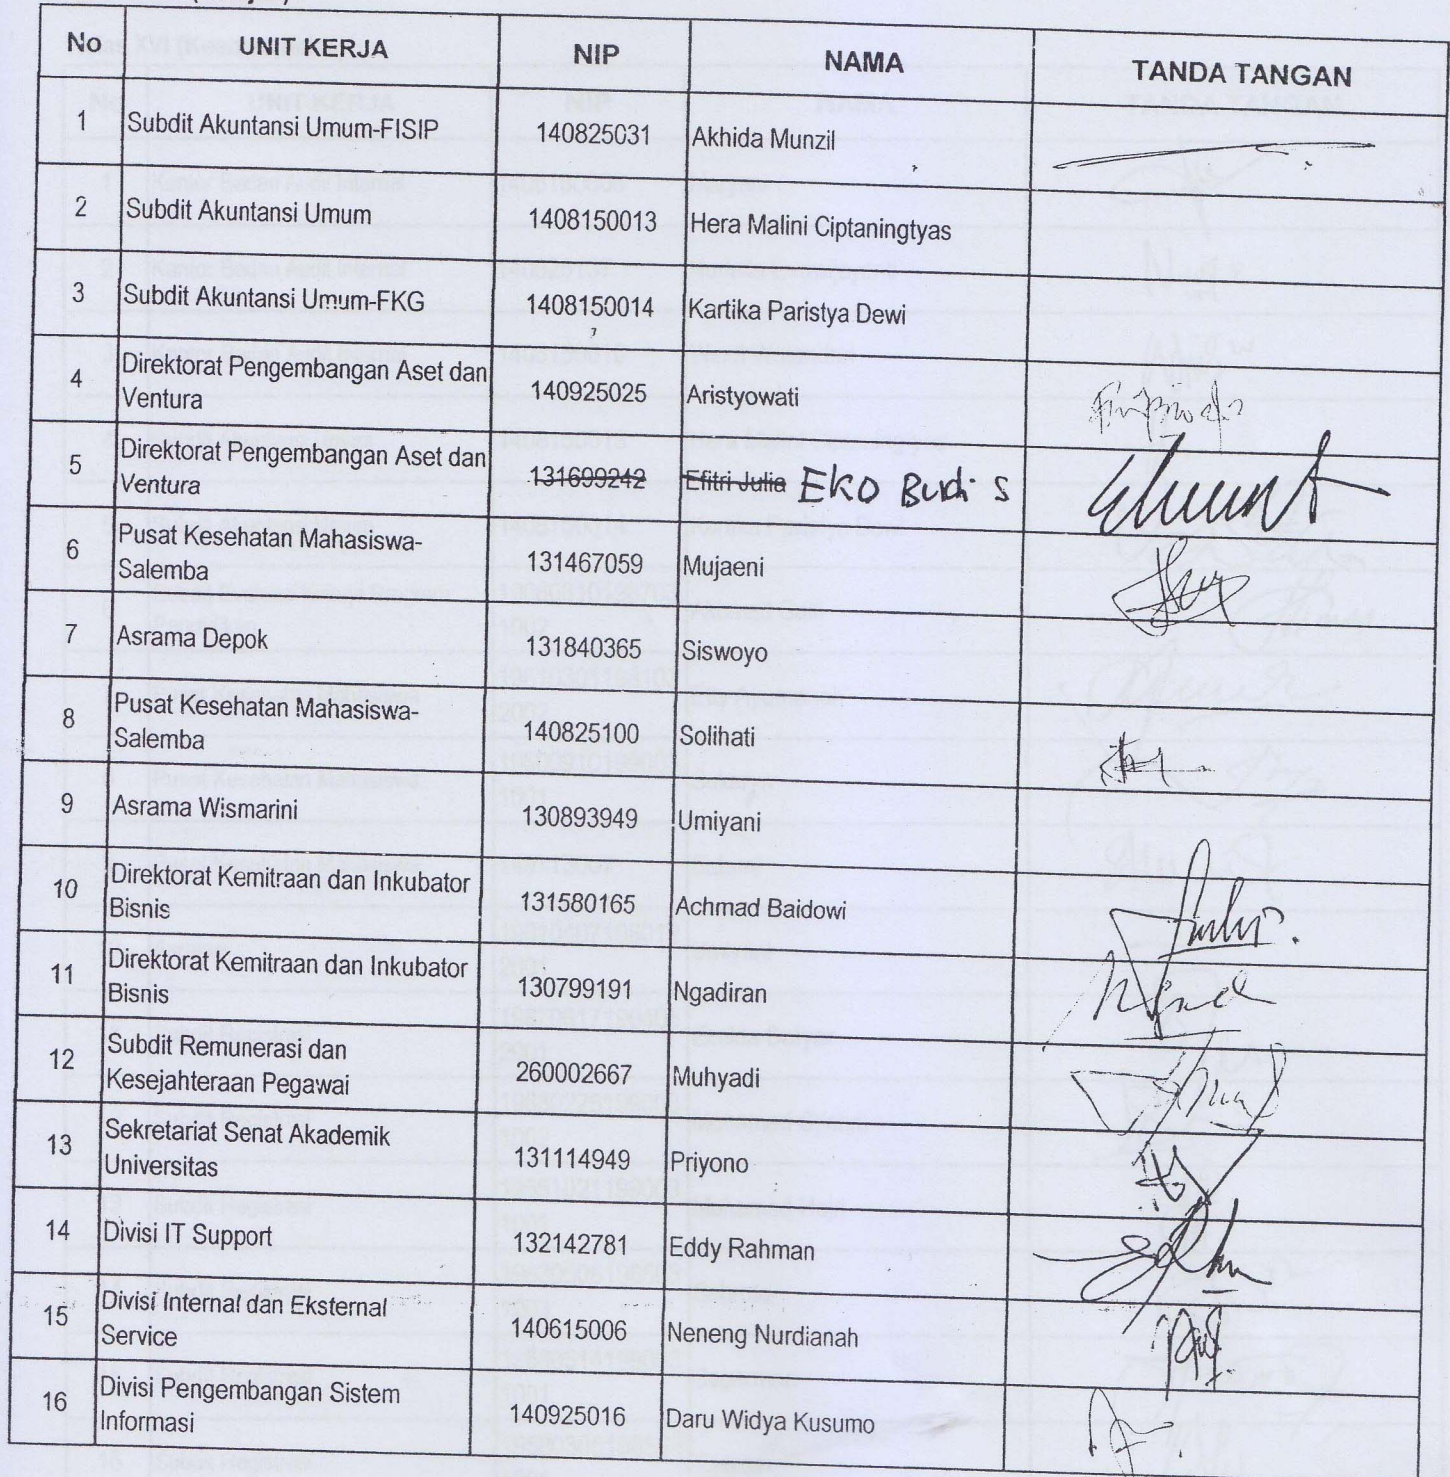 No UNIT KERJA NIP NAMA TANDA TANGAN
1 Subdit Akuntansi Umum-FISIP 140825031 Akhida Munzil
2 Subdit Akuntansi Umum 1408150013 Hera Malini Ciptaningtyas
3 Subdit Akuntansi Umum-FKG 1408150014 Kartika Paristya Dewi
4 Direktorat Pengembangan Aset dan
Ventura 140925025 Aristyowati
5 Direktorat Pengembangan Aset dan
Ventura 131699242 Efitri Julia Eko Budi S
6 Pusat Kesehatan Mahasiswa-
Salemba 131467059 Mujaeni
7 Asrama Depok 131840365 Siswoyo
8 Pusat Kesehatan Mahasiswa-
Salemba 140825100 Solihati
9 Asrama Wismarini 130893949 Umiyani
10 Direktorat Kemitraan dan Inkubator
Bisnis 131580165 Achmad Baidowi
11 Direktorat Kemitraan dan Inkubator
Bisnis 130799191 Ngadiran
12 Subdit Remunerasi dan
Kesejahteraan Pegawai 260002667 Muhyadi
13 Sekretariat Senat Akademik
Universitas 131114949 Priyono
14 Divisi IT Support 132142781 Eddy Rahman
15 Divisi Internal dan Eksternal
Service 140615006 Neneng Nurdianah
16 Divisi Pengembangan Sistem
Informasi 140925016 Daru Widya Kusumo